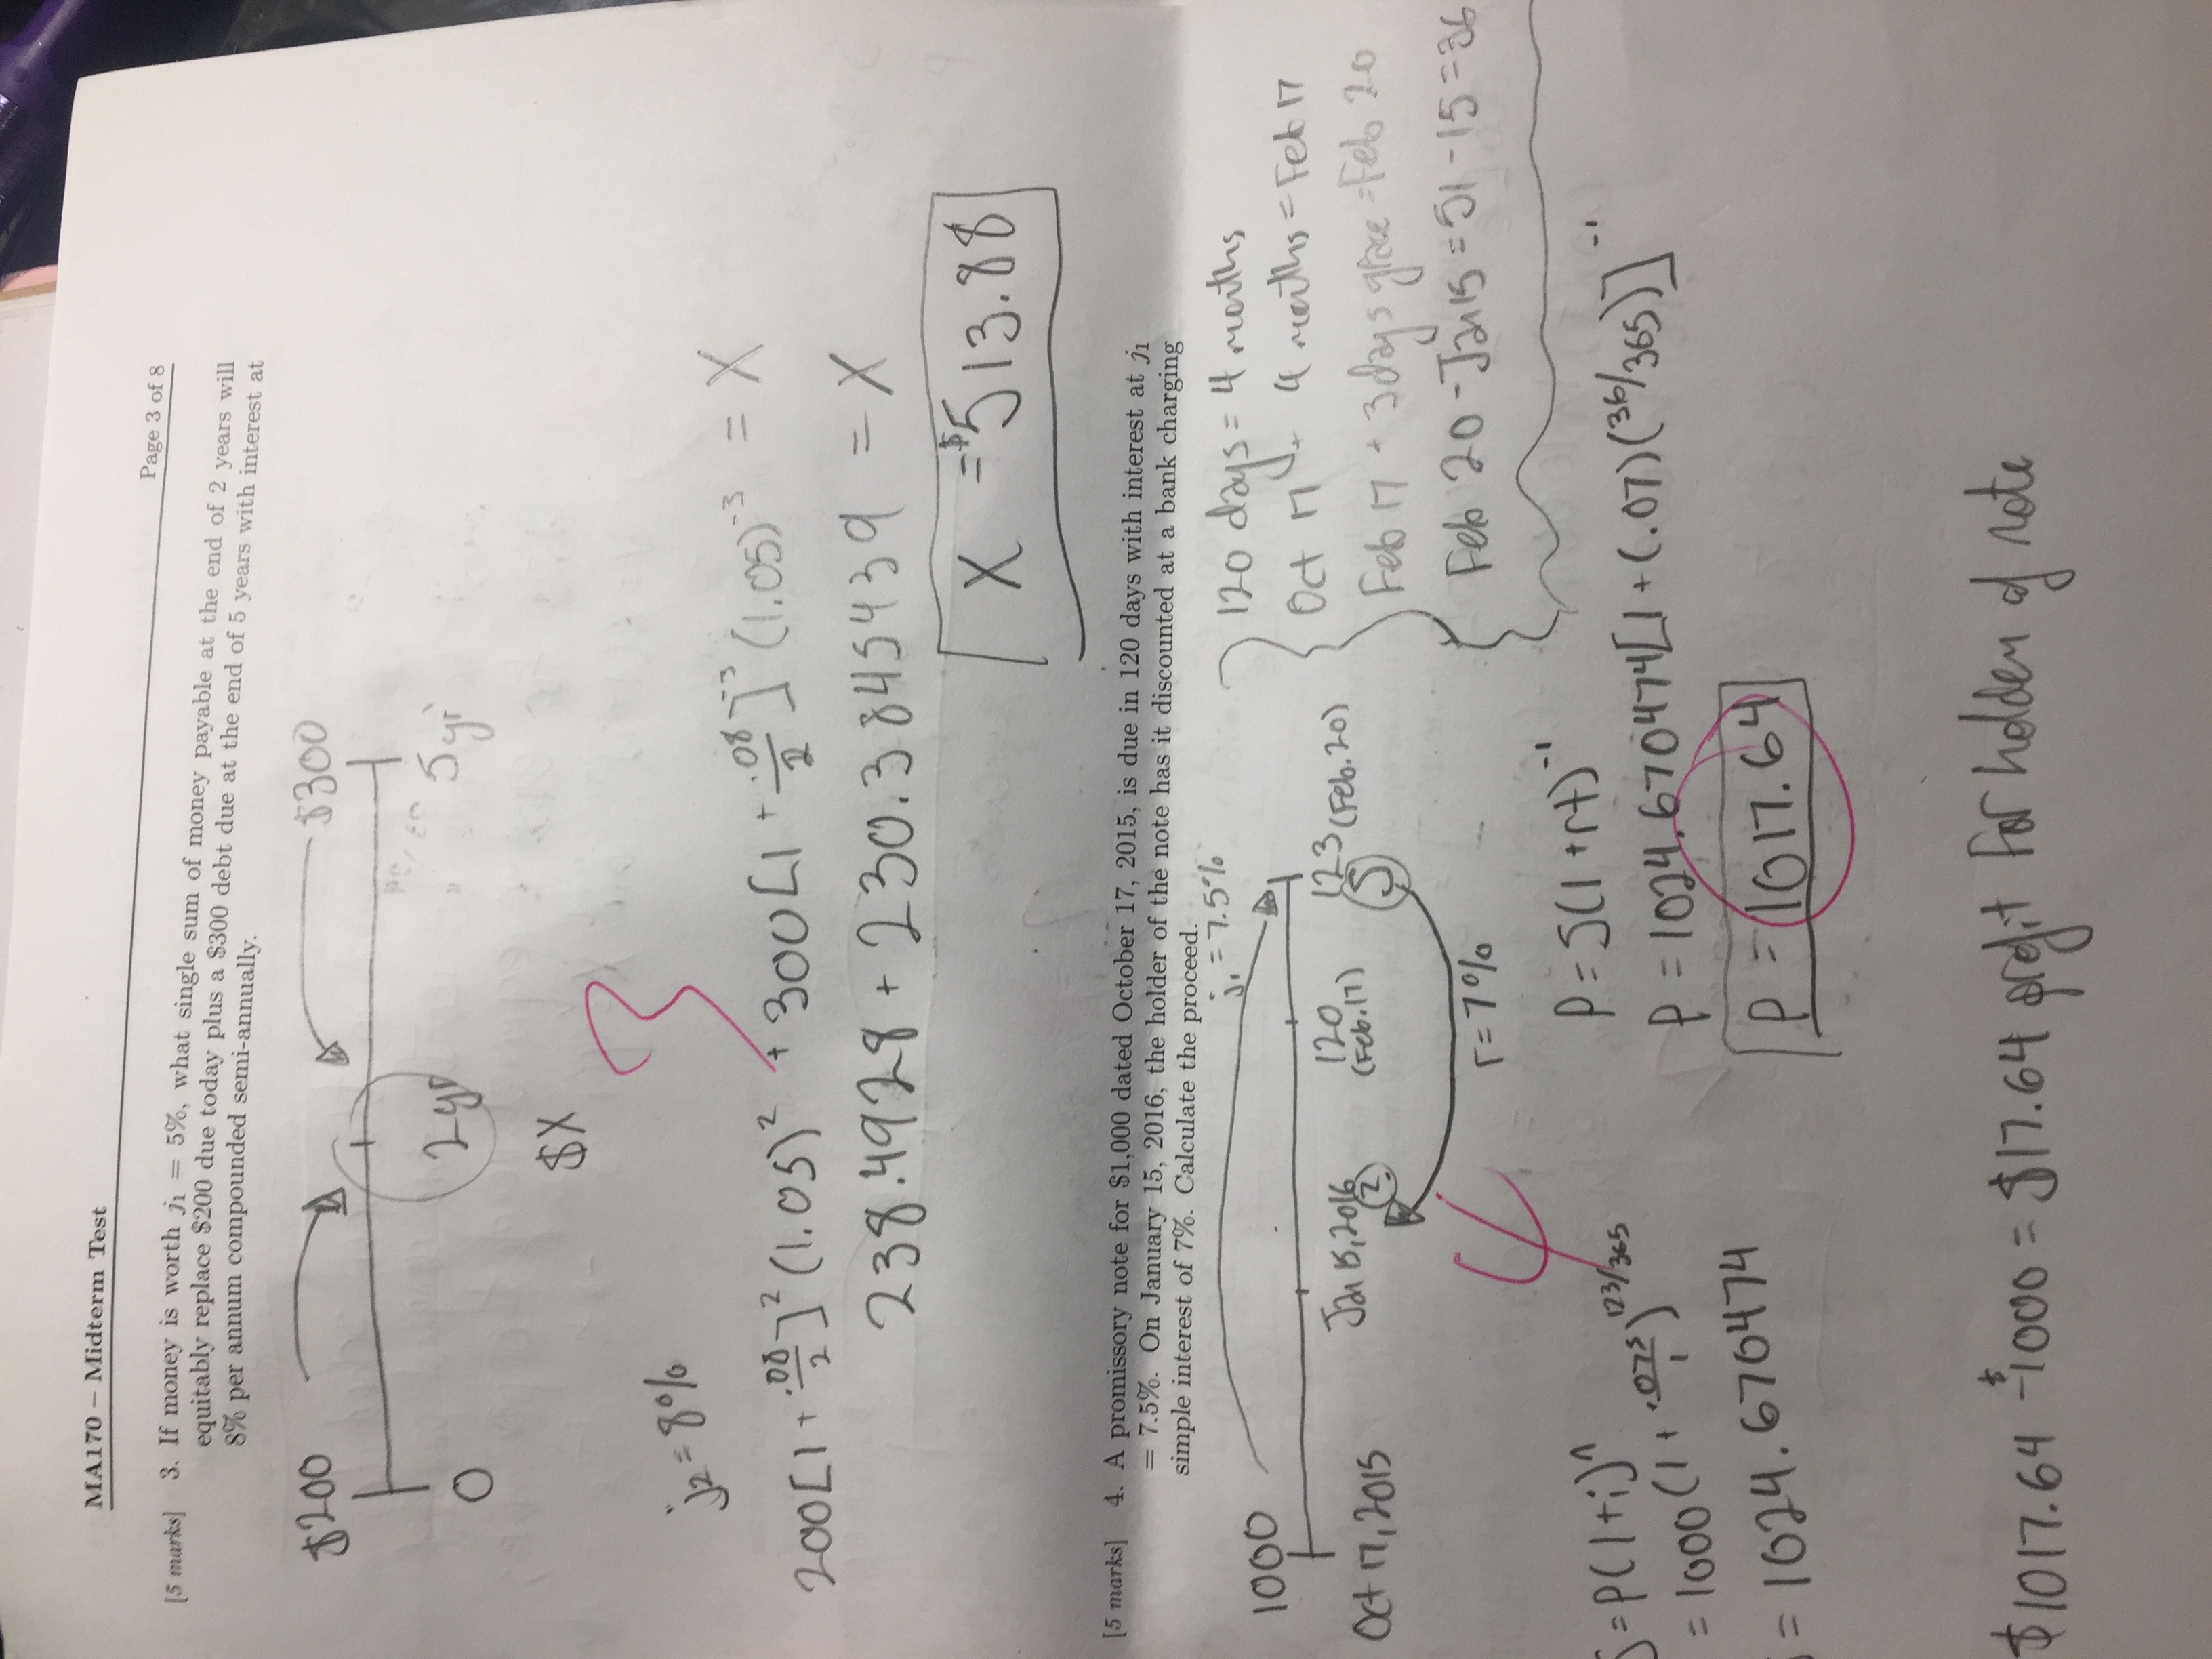 MA170 – Midterm Test Page 3 of 8
[5 marks] 3. If money is worth j₁ = 5%, what single sum of money payable at the end of 2 years will
equitably replace $200 due today plus a $300 debt due at the end of 5 years with interest at
8% per annum compounded semi-annually.
$200 $300
0 2yr 5yr
$X
3
j₂ = 8%
200[1 + .08/2]² (1.05)² + 300[1 + .08/2]⁻³ (1.05)⁻³ = X
238.4928 + 230.3845439 = X
X = $513.88
[5 marks] 4. A promissory note for $1,000 dated October 17, 2015, is due in 120 days with interest at j₁
= 7.5%. On January 15, 2016, the holder of the note has it discounted at a bank charging
simple interest of 7%. Calculate the proceed.
j₁ = 7.5%
1000
Oct 17, 2015 Jan 15, 2016 120 (Feb.17) 123 (Feb.20)
2. S
r = 7%
120 days = 4 months
Oct 17 + 4 months = Feb 17
Feb 17 + 3 days grace = Feb 20
Feb 20 - Jan 15 = 51 - 15 = 36
4
S = P(1+i)ⁿ
= 1000(1 + .075/1)^123/365
= 1024.670474
P = S(1+rt)⁻¹
P = 1024.670474[1 + (.07)(36/365)]⁻¹
P = 1017.64
$1017.64 - $1000 = $17.64 profit for holder of note